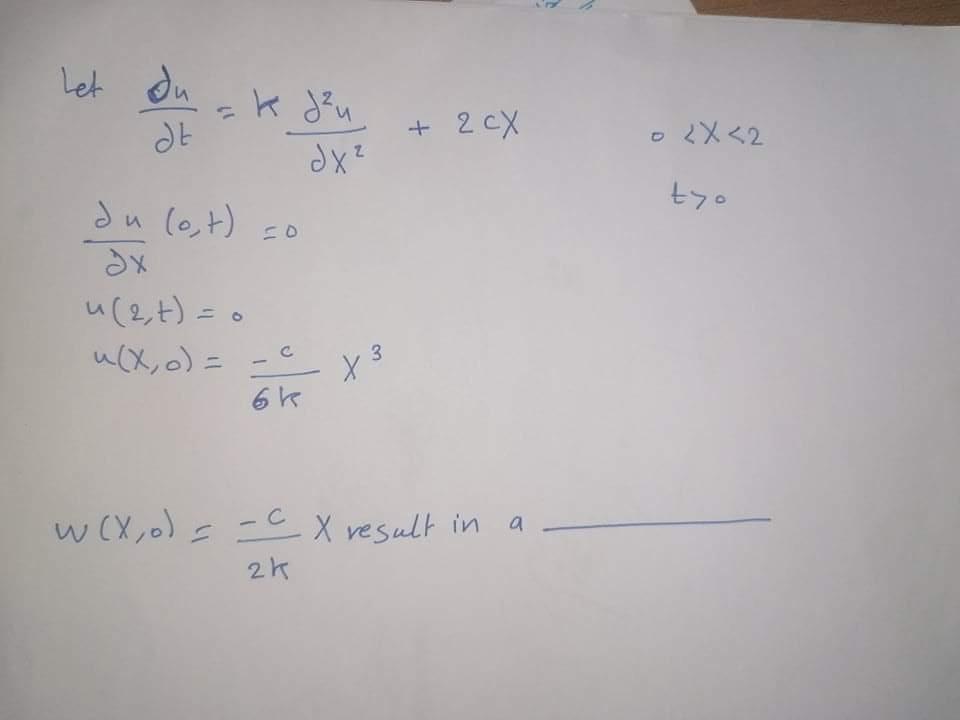 Let ∂u/∂t = k ∂²u/∂x² + 2cx    0 < x < 2
t > 0
∂u/∂x (0,t) = 0
u(2,t) = 0
u(x,0) = -c/6k x³
w(x,0) = -c/2k x result in a ________